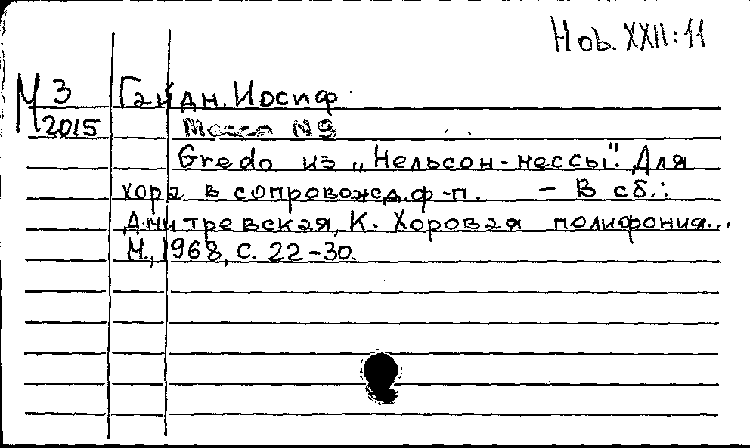 Hob. XXII:11
М 3 Гайдн. Иосиф
2015 Месса №9
Gredo из „Нельсон-мессы". Для
хора в сопровожд. ф-п. – В сб.:
Дмитревская, К. Хоровая полифония...
М., 1968, с. 22-30.